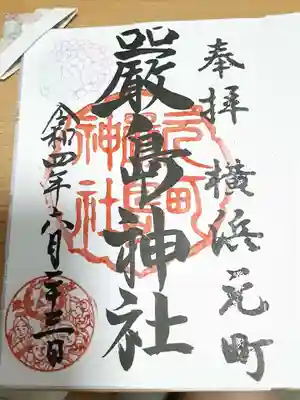 奉拝 横浜元町
嚴島神社
令和四年六月二十三日
元町
嚴島
神社